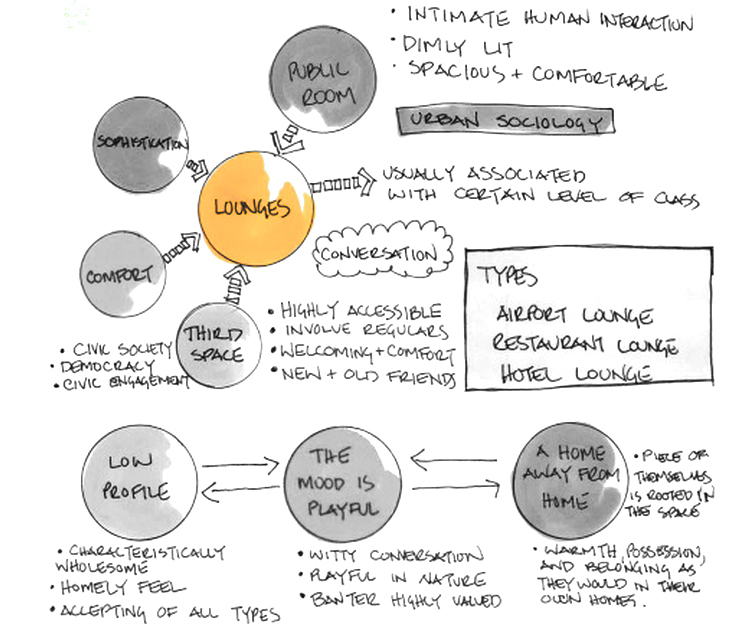 • INTIMATE HUMAN INTERACTION
• DIMLY LIT
• SPACIOUS + COMFORTABLE
PUBLIC
ROOM
URBAN SOCIOLOGY
SOPHISTICATION
LOUNGES
USUALLY ASSOCIATED
WITH CERTAIN LEVEL OF CLASS
CONVERSATION
COMFORT
TYPES
AIRPORT LOUNGE
RESTAURANT LOUNGE
HOTEL LOUNGE
THIRD
SPACE
• HIGHLY ACCESSIBLE
• INVOLVE REGULARS
• WELCOMING + COMFORT
• NEW + OLD FRIENDS
• CIVIC SOCIETY
• DEMOCRACY
• CIVIC ENGAGEMENT
LOW
PROFILE
THE
MOOD IS
PLAYFUL
A HOME
AWAY FROM
HOME
• PIECE OF
THEMSELVES
IS ROOTED IN
THE SPACE
• CHARACTERISTICALLY
WHOLESOME
• HOMELY FEEL
• ACCEPTING OF ALL TYPES
• WITTY CONVERSATION
• PLAYFUL IN NATURE
• BANTER HIGHLY VALUED
• WARMTH, POSSESSION,
AND BELONGING AS
THEY WOULD IN THEIR
OWN HOMES.